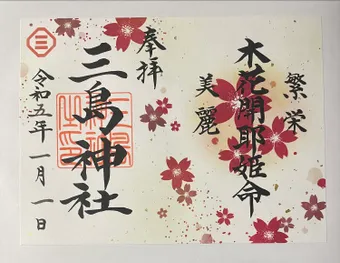 繁栄
木花開耶姫命
美麗
奉拝
三島神社
令和五年一月一日
三